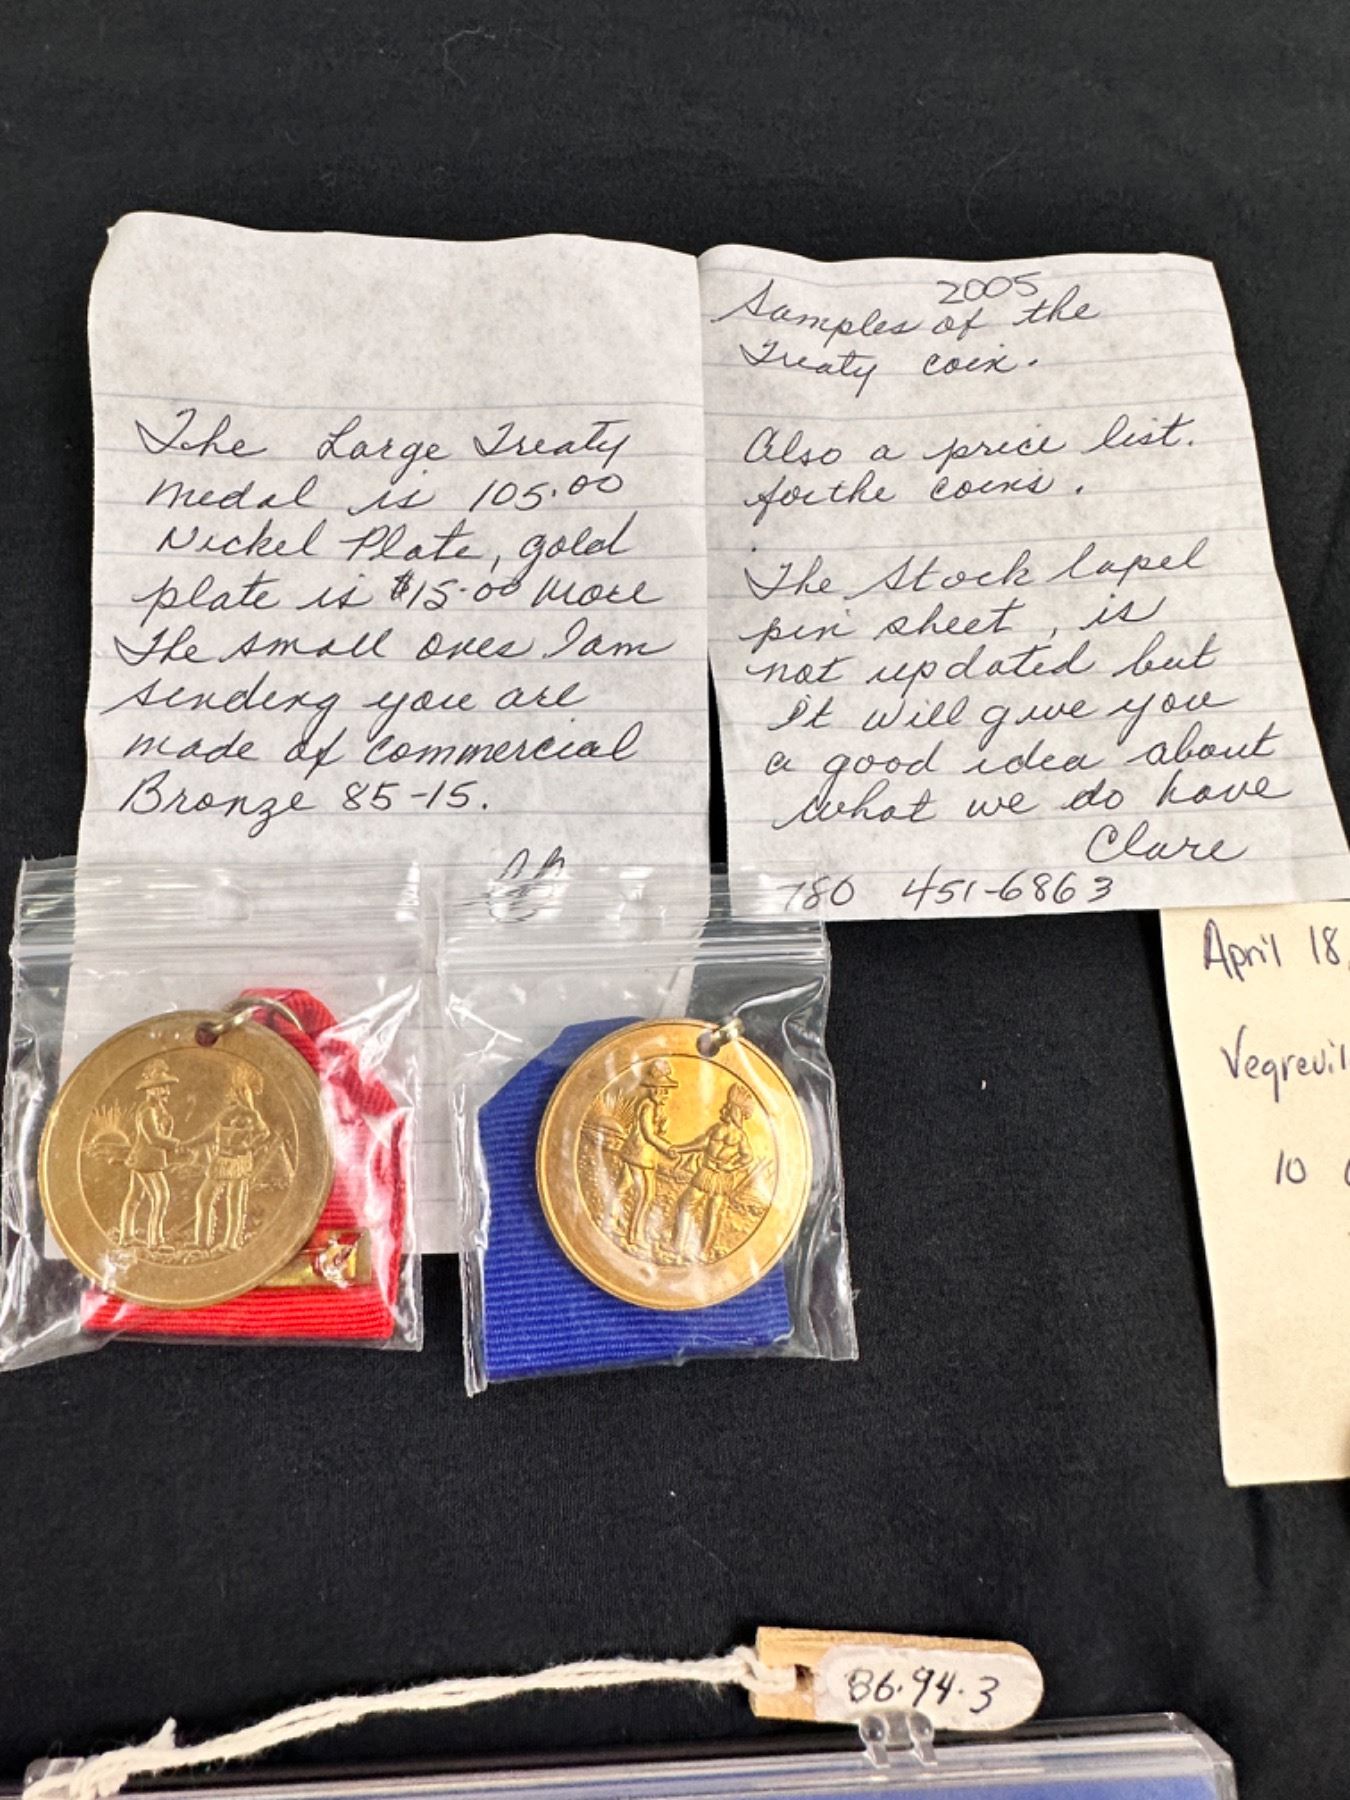 The Large Treaty
medal is 105.00
Nickel Plate, gold
plate is $15.00 More
The small ones I am
sending you are
made of commercial
Bronze 85-15.
2005
Samples of the
Treaty coin.
Also a price list.
for the coins.
The Stock lapel
pin sheet, is
not updated but
It will give you
a good idea about
what we do have
Clare
780 451-6863
April 18,
Vegrevil
10
86.94.3